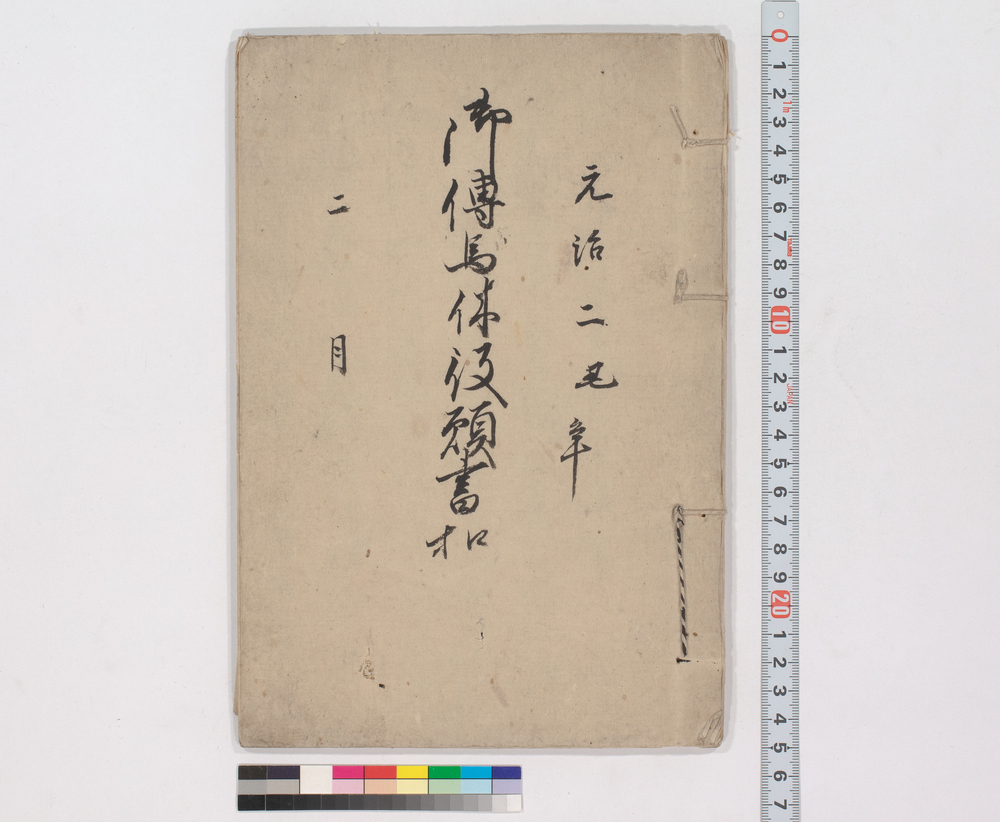 元治二丑年
御傳馬休役願書扣
二月
0
1
2
3
4
5
6
7
8
9
10
1
2
3
4
5
6
7
8
9
20
1
2
3
4
5
6
7